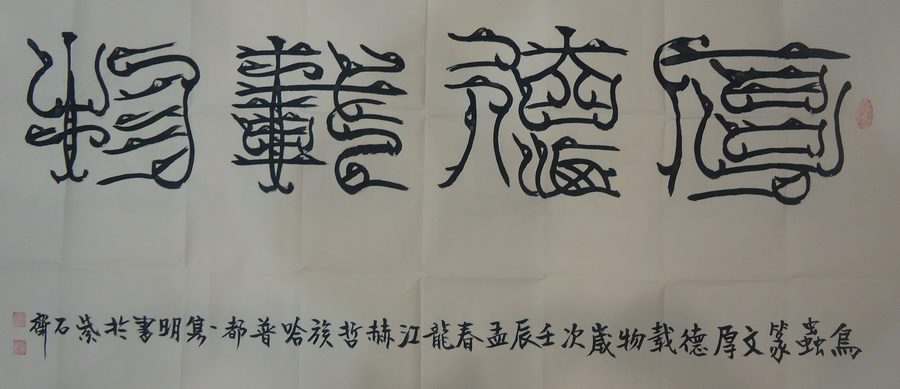 厚德載物
鳥蟲篆文厚德載物歲次壬辰孟春龍江赫哲族哈普都·隽明書於紫石齋